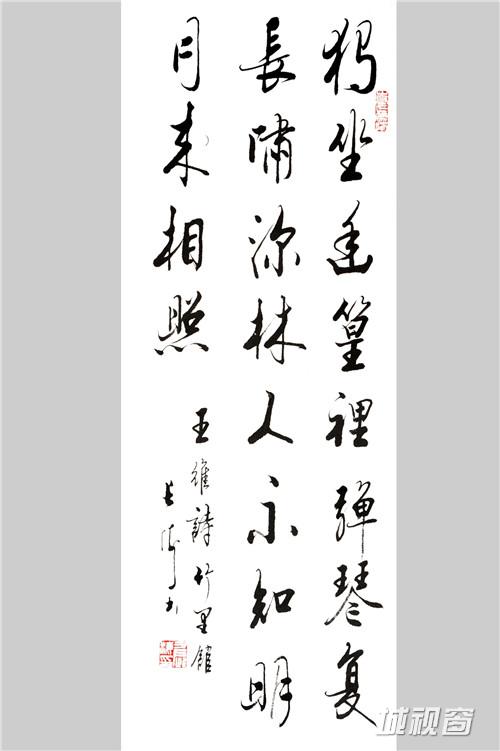 獨坐幽篁裡弹琴复
長啸深林人不知明
月来相照
王維詩竹里館
書
城视窗